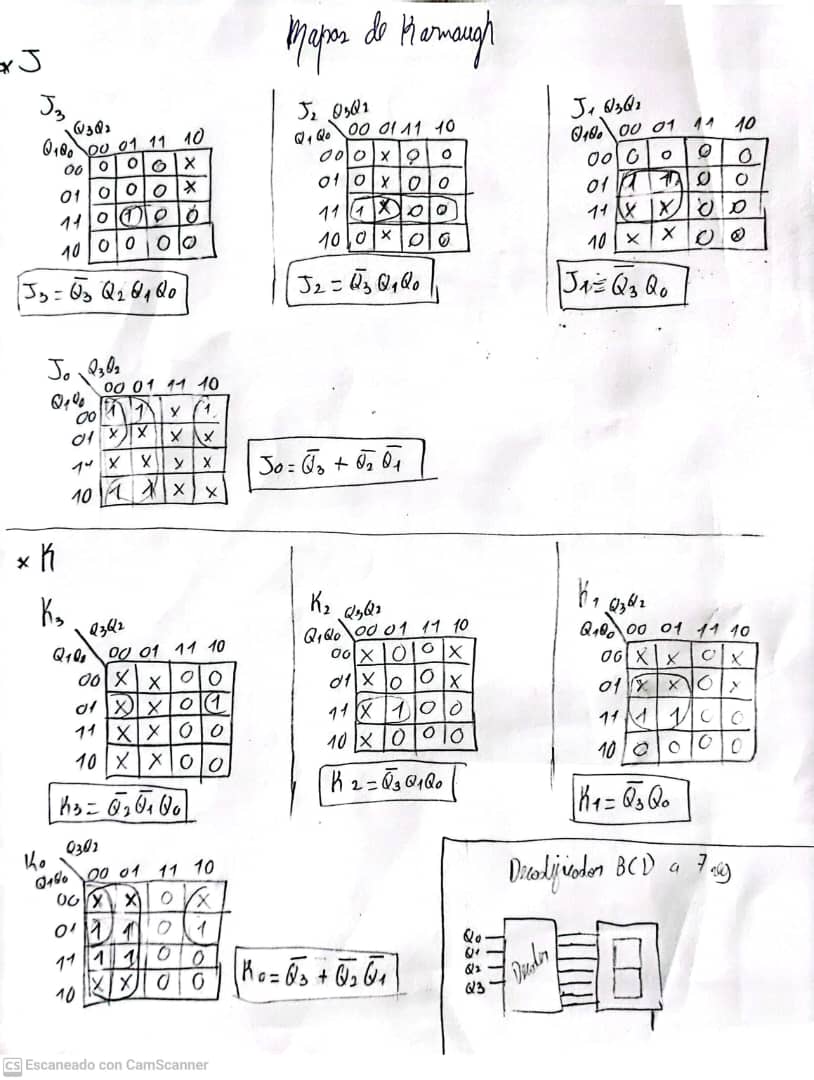 Mapas de Karnaugh
* J
J3 Q3Q2
Q1Q0 00 01 11 10
00 0 0 0 X
01 0 0 0 X
11 0 1 0 0
10 0 0 0 0
J3 = Q̄3 Q2 Q1 Q0
J2 Q3Q2
Q1Q0 00 01 11 10
00 0 X 0 0
01 0 X 0 0
11 1 X 0 0
10 0 X 0 0
J2 = Q̄3 Q1 Q0
J1 Q3Q2
Q1Q0 00 01 11 10
00 0 0 0 0
01 1 1 0 0
11 X X 0 0
10 X X 0 0
J1 = Q̄3 Q0
J0 Q3Q2
Q1Q0 00 01 11 10
00 1 1 X 1
01 X X X X
11 X X X X
10 1 1 X X
J0 = Q̄3 + Q̄2 Q̄1
* K
K3 Q3Q2
Q1Q0 00 01 11 10
00 X X 0 0
01 X X 0 1
11 X X 0 0
10 X X 0 0
K3 = Q̄2 Q̄1 Q0
K2 Q3Q2
Q1Q0 00 01 11 10
00 X 0 0 X
01 X 0 0 X
11 X 1 0 0
10 X 0 0 0
K2 = Q̄3 Q1 Q0
K1 Q3Q2
Q1Q0 00 01 11 10
00 X X 0 X
01 X X 0 X
11 1 1 0 0
10 0 0 0 0
K1 = Q̄3 Q0
K0 Q3Q2
Q1Q0 00 01 11 10
00 X X 0 X
01 1 1 0 1
11 1 1 0 0
10 X X 0 0
K0 = Q̄3 + Q̄2 Q̄1
Decodificador BCD a 7 seg
Q0
Q1
Q2
Q3
CS Escaneado con CamScanner